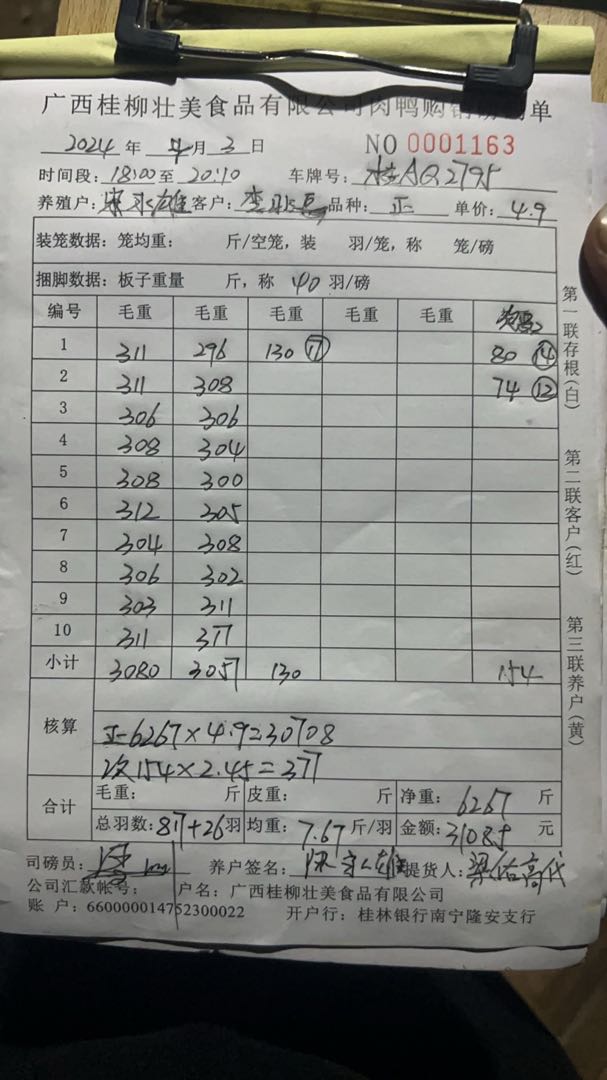 广西桂柳壮美食品有限公司肉鸭购销 单
2024 年 4月 3日 NO 0001163
时间段：18:00至 20:10 车牌号：桂AQ2795
养殖户： 永雄 客户： 品种：正 单价：4.9
装笼数据：笼均重： 斤/空笼，装 羽/笼，称 笼/磅
捆脚数据：板子重量 斤，称 40 羽/磅
编号 毛重 毛重 毛重 毛重 毛重
1 311 296 130 ⑰ 80 ⑭
2 311 308 74 ⑫
3 306 306
4 308 304
5 308 300
6 312 305
7 304 308
8 306 302
9 303 311
10 311 317
小计 3080 3057 130 154
核算
正6267×4.9=30708
次154×2.45=377
合计 毛重： 斤 皮重： 斤 净重：6267 斤
总羽数：817+26羽 均重：7.67斤/羽 金额：31085 元
司磅员： 养户签名： 提货人：梁佑高代
公司汇款帐号： 户名：广西桂柳壮美食品有限公司
账 户：660000014752300022 开户行：桂林银行南宁隆安支行
第一联存根(白)
第二联客户(红)
第三联养户(黄)